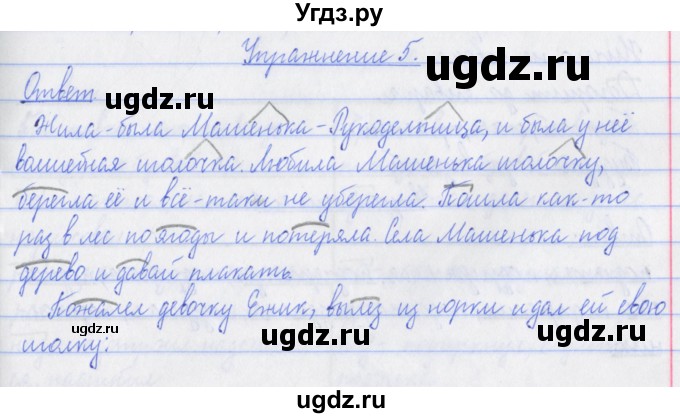 Угдз.ру
Упражнение 5.
Ответ
Жила-была Машенька-Рукодельница, и была у неё
волшебная иголочка. Любила Машенька иголочку,
берегла её и всё-таки не уберегла. Пошла как-то
раз в лес по ягоды и потеряла. Села Машенька под
дерево и давай плакать.
Пожалел девочку Ежик, вылез из норки и дал ей свою
иголку:
ugdz.ru
ugdz.ru
ugdz.ru
ugdz.ru
ugdz.ru
ugdz.ru
ugdz.ru
ugdz.ru
ugdz.ru